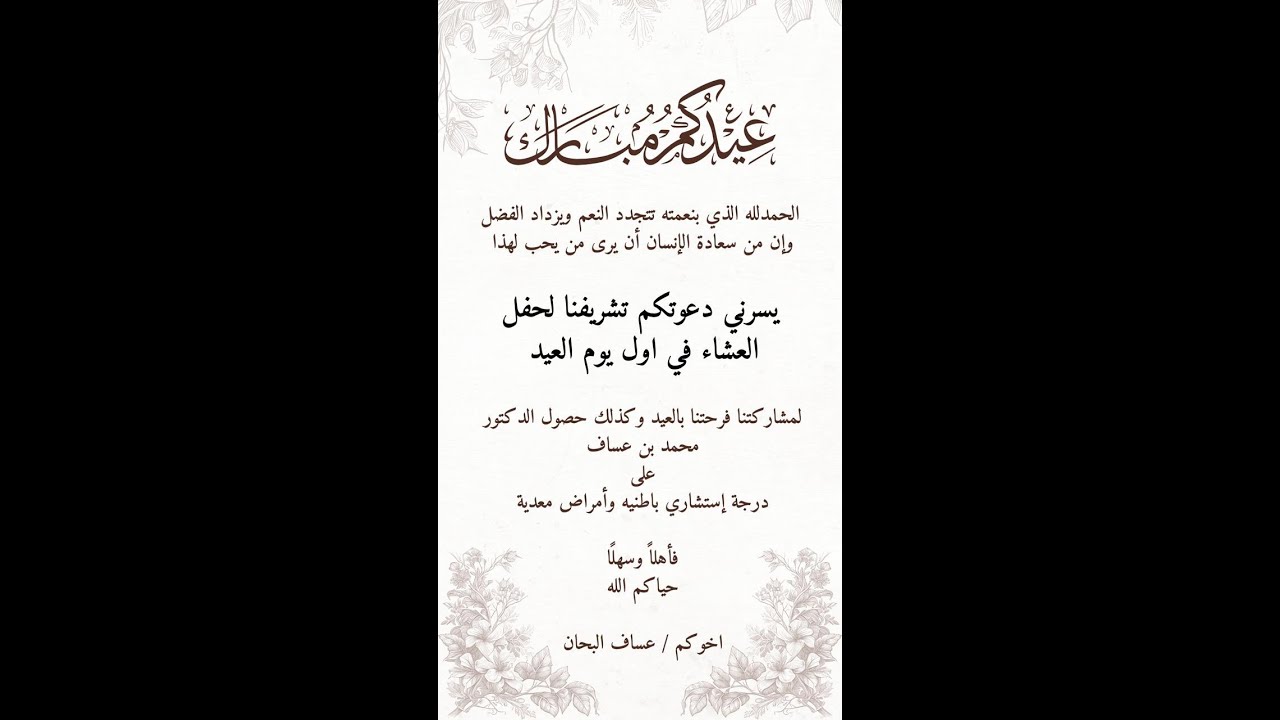 عيدكم مبارك
الحمدلله الذي بنعمته تتجدد النعم ويزداد الفضل
وإن من سعادة الإنسان أن يرى من يحب لهذا
يسرني دعوتكم تشريفنا لحفل
العشاء في اول يوم العيد
لمشاركتنا فرحتنا بالعيد وكذلك حصول الدكتور
محمد بن عساف
على
درجة إستشاري باطنيه وأمراض معدية
فأهلاً وسهلًا
حياكم الله
اخوكم / عساف البحان